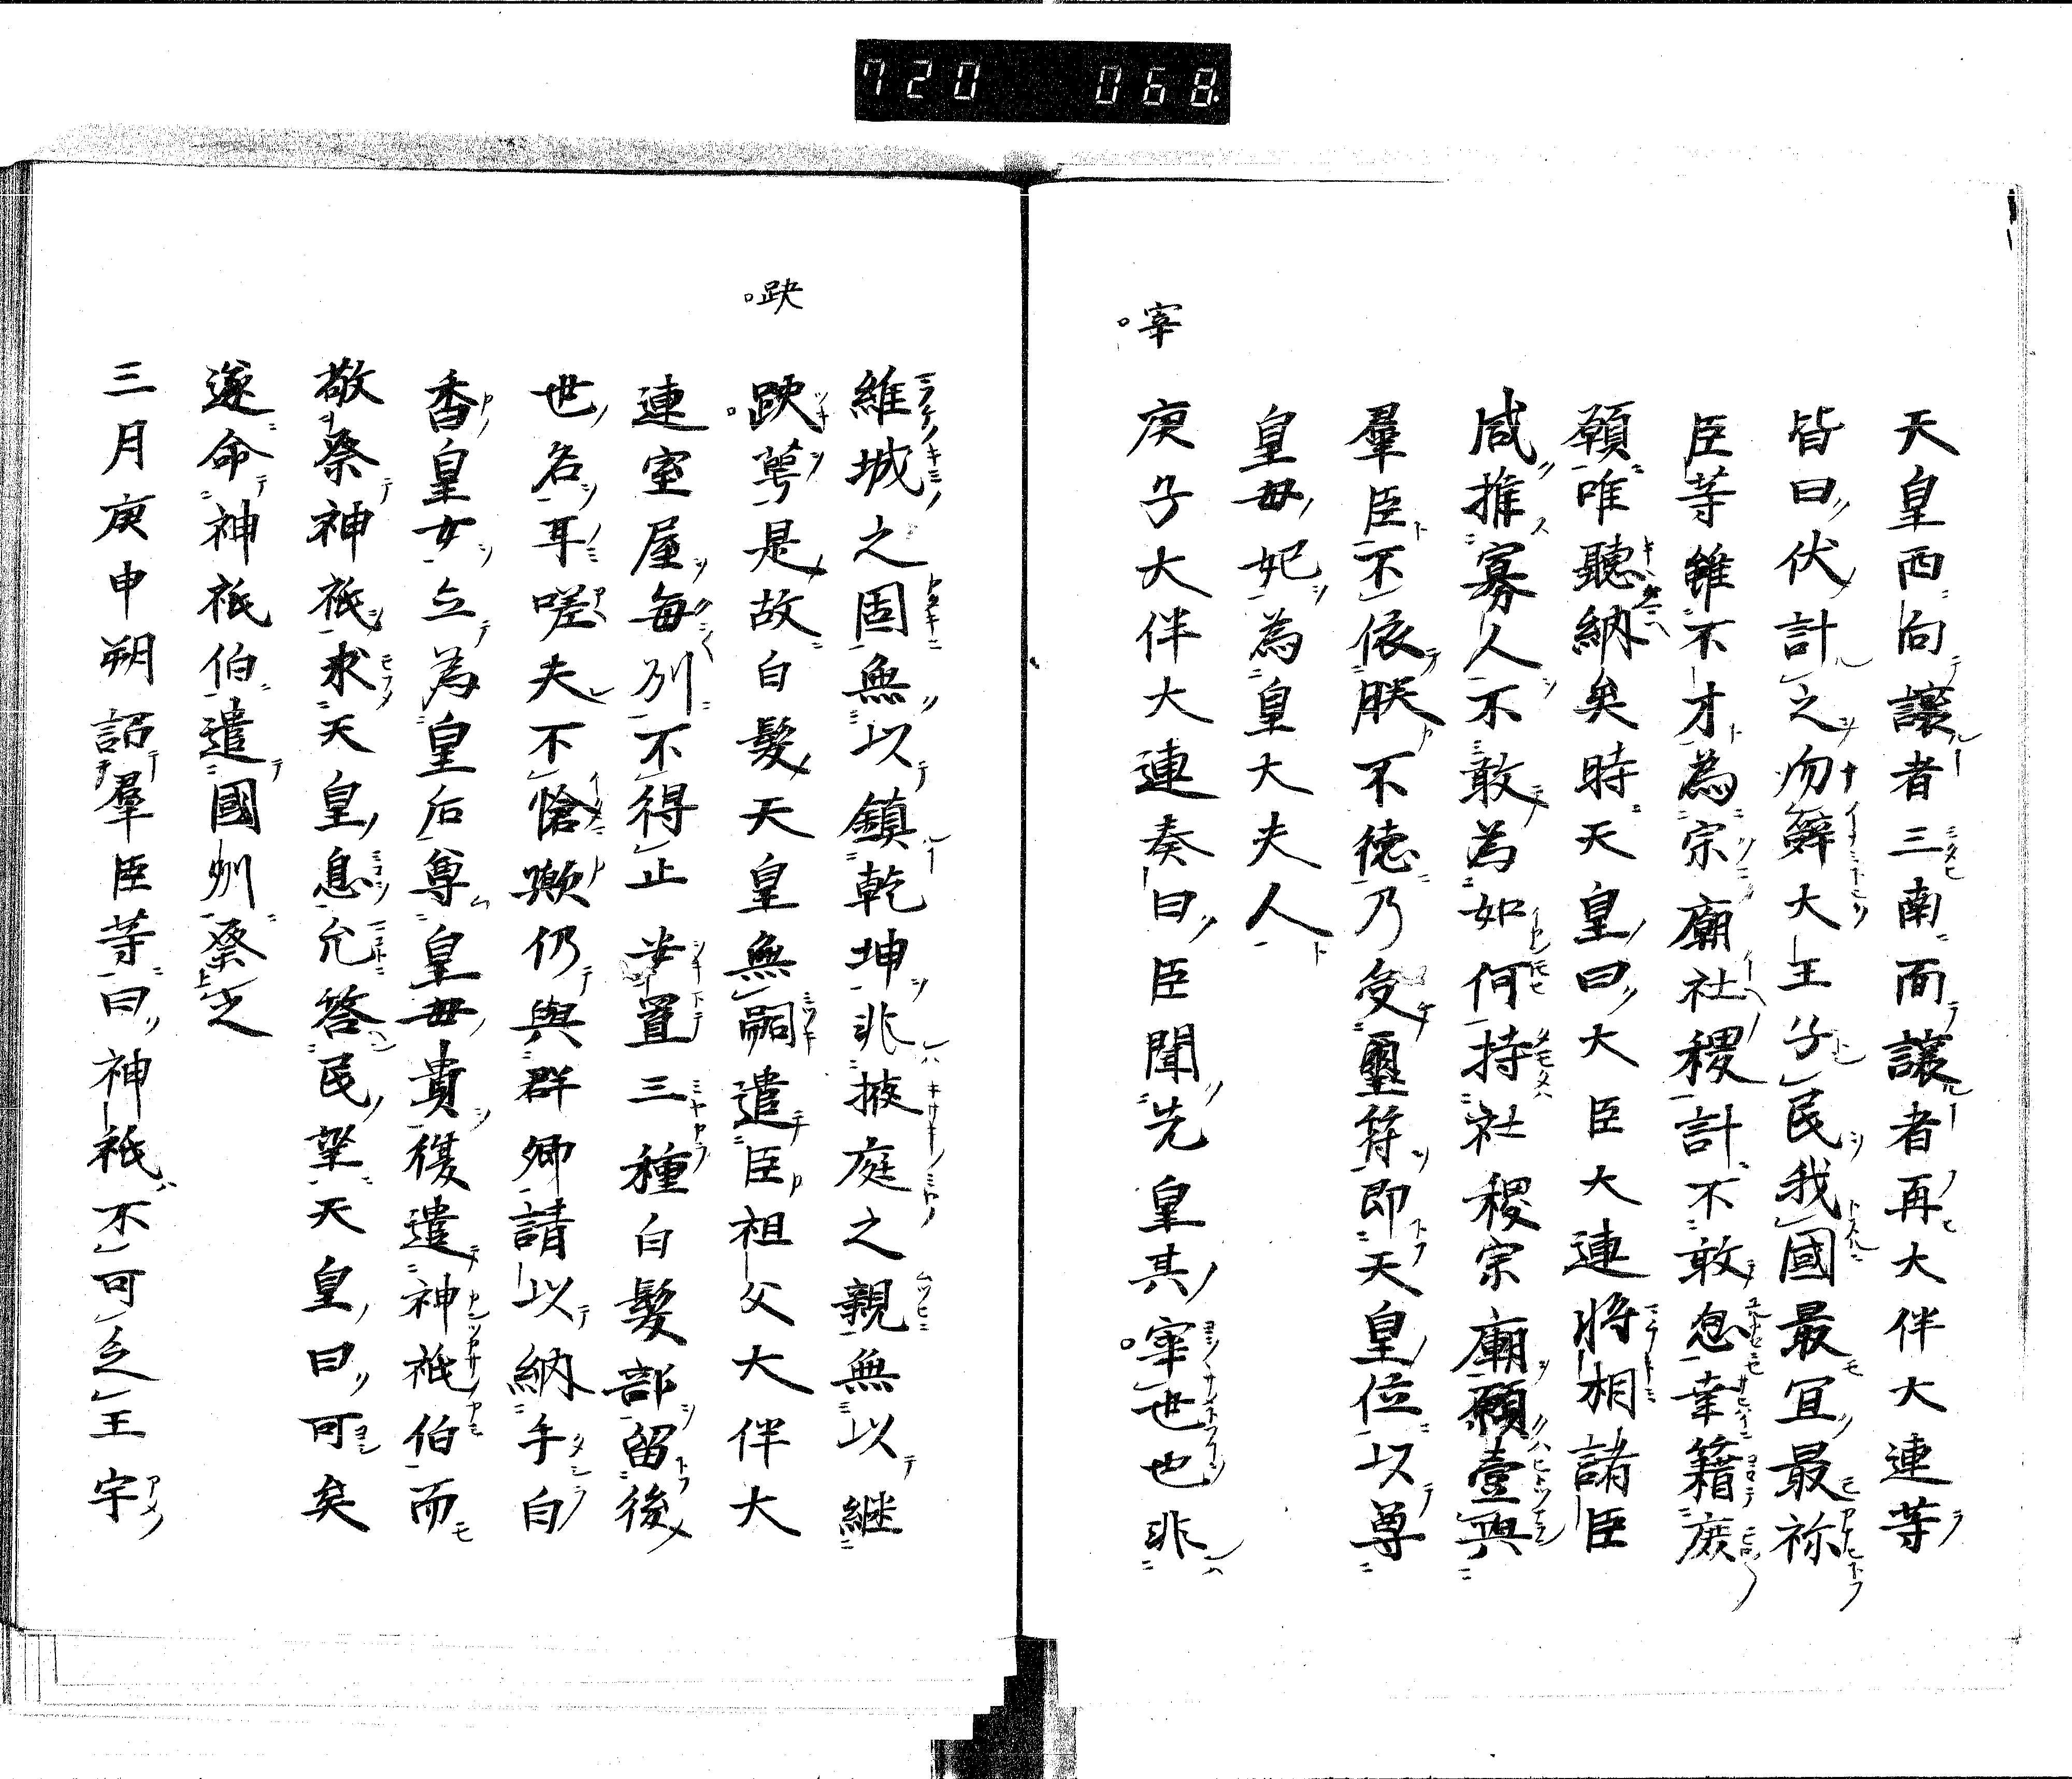 720 068
天皇西向讓者三南面讓者再大伴大連等
皆曰伏計之勿辭大王子民我國最宜最祢
臣等雖不才為宗廟社稷計不敢忽幸籍庶
願唯聽納矣時天皇曰大臣大連將相諸臣
咸推寡人不敢為如何持社稷宗廟願壹與
羣臣不依朕不德乃受璽符即天皇位以尊
皇毋妃為皇大夫人
宰
庚子大伴大連奏曰臣聞先皇其宰世也非
維城之固無以鎮乾坤非掖庭之親無以継
趺
趺萼是故白髮天皇無嗣遣臣祖父大伴大
連室屋每州不得止安置三種白髮部留後
世名耳嗟夫不愴歟仍與群卿請以納手白
香皇女立為皇后尊皇毋貴復遣神祇伯而
敬祭神祇求天皇息允答民望天皇曰可矣
遂命神祇伯遣國州祭之
三月庚申朔詔羣臣等曰神祇不可乏王宇